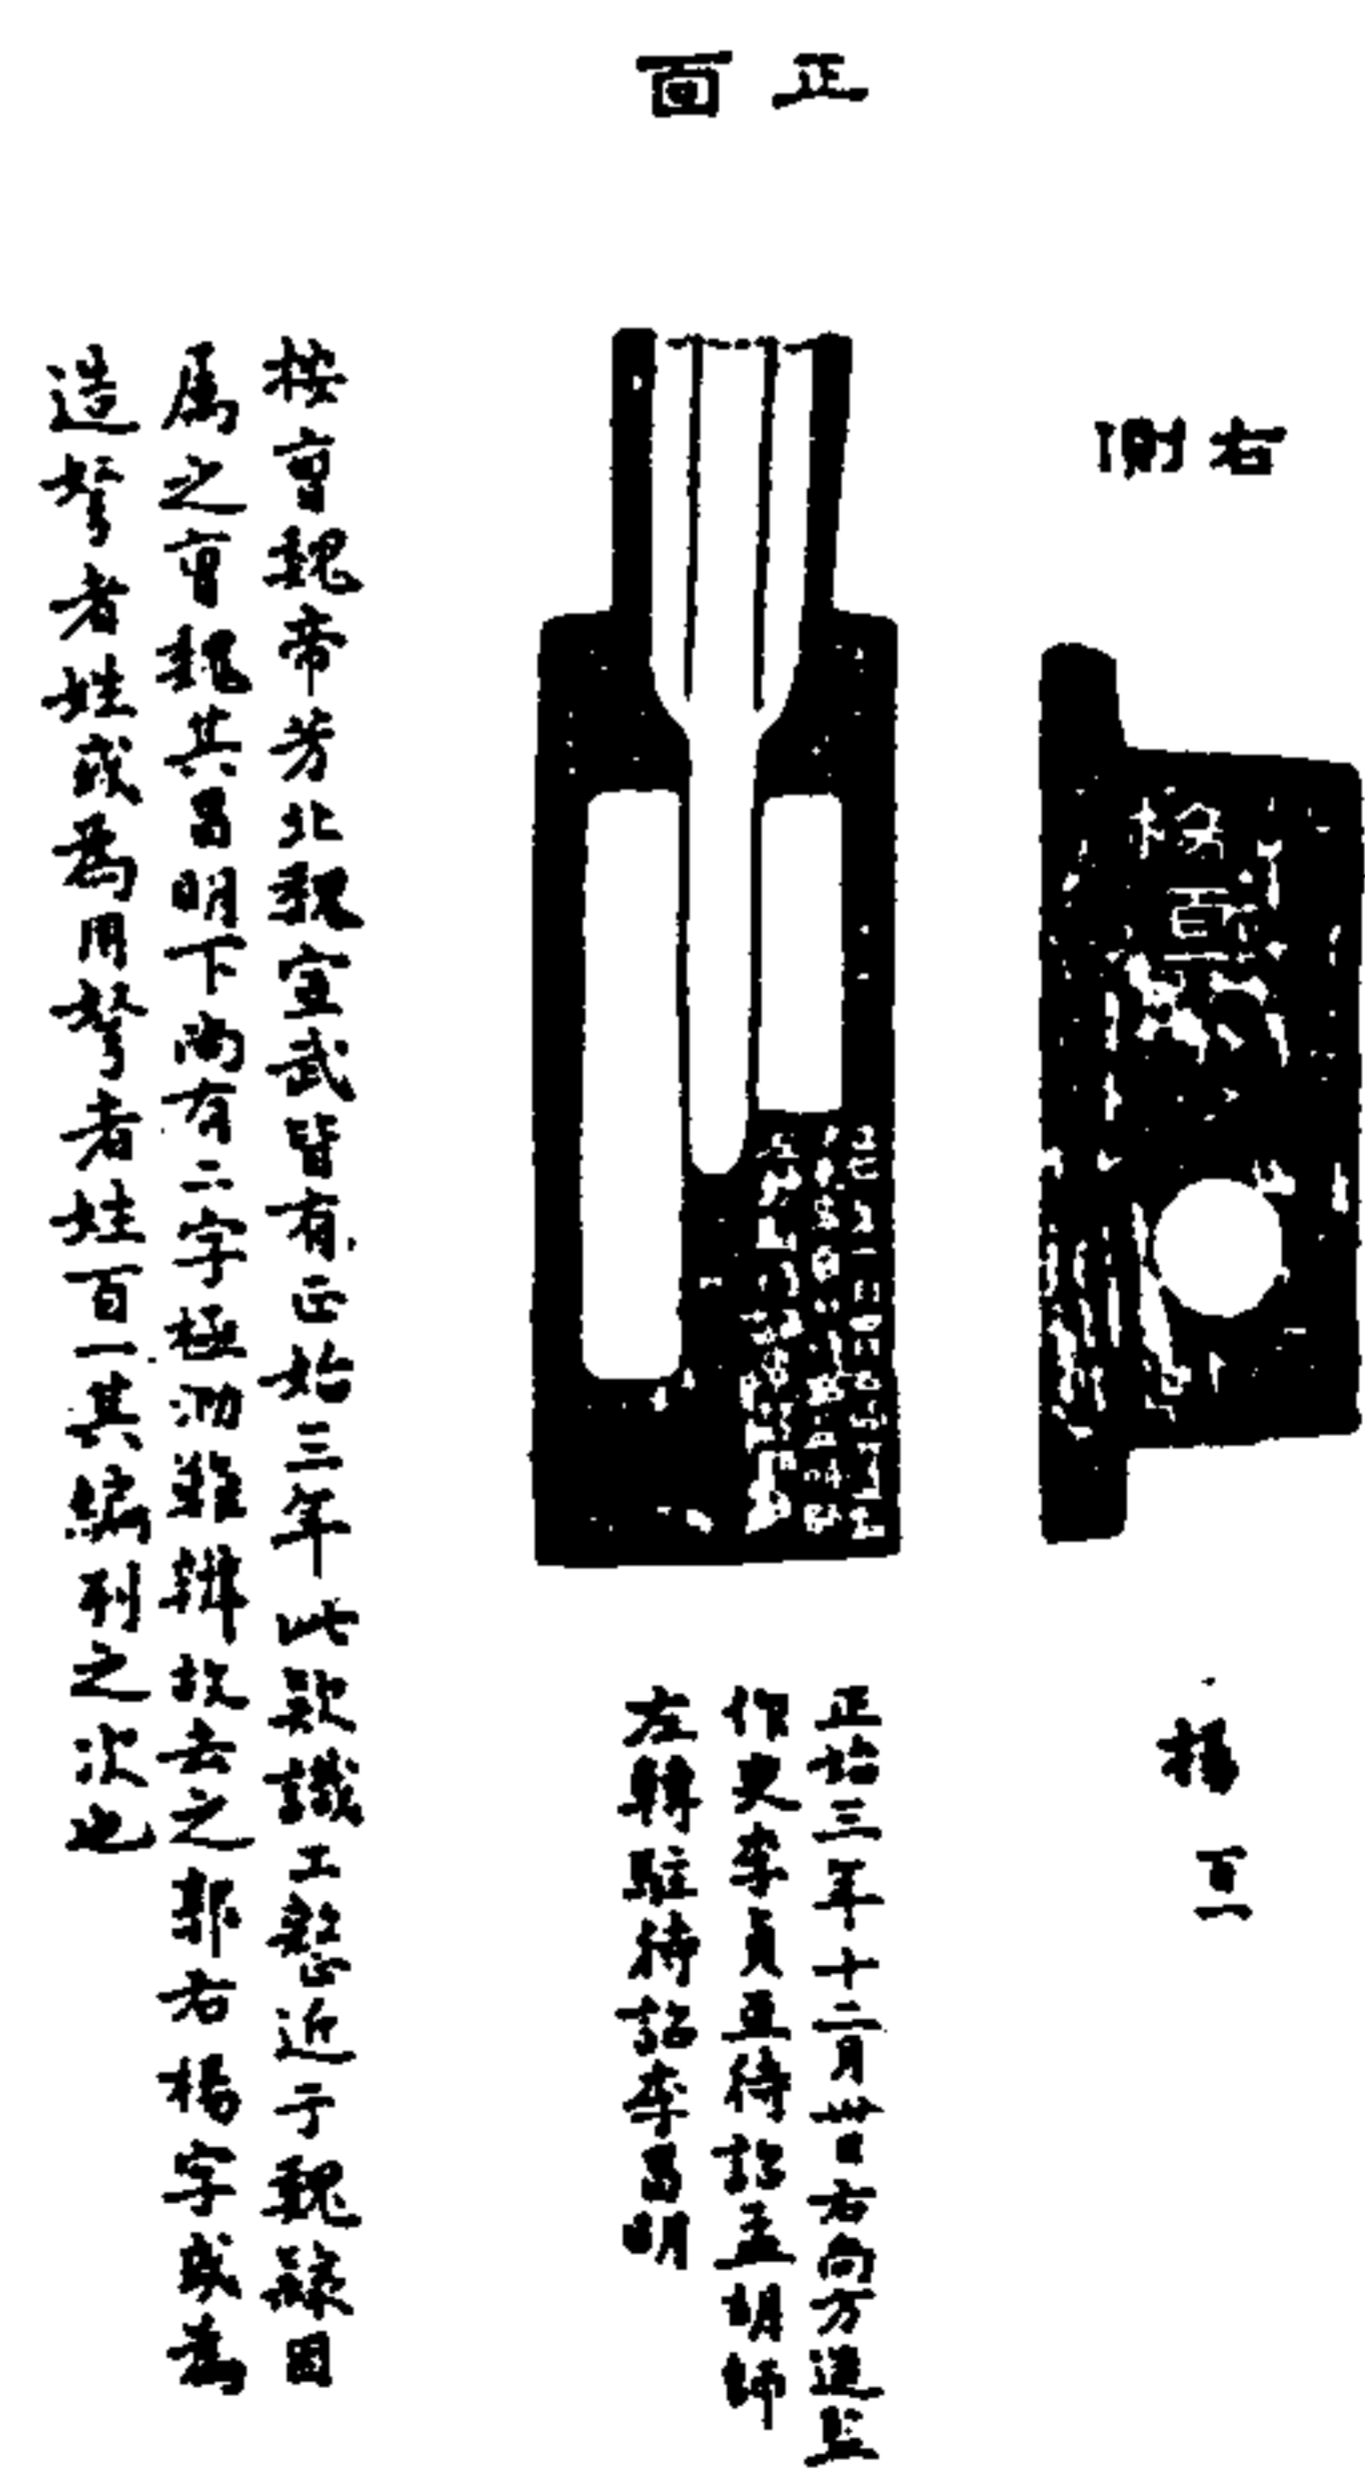 正面
右側
楊 百一
正始三年十二月卅日右尚方造監
作吏李員孟待詔孟胡師
左轉駐待詔李昌明
按曹魏帝芳北魏宣武皆有正始三年此款識工整近于魏隸因
屬之曹魏其昌明下尚有二字極泐難辨故去之郭右楊字或為
造弩者姓或為用弩者姓百一其編列之次也